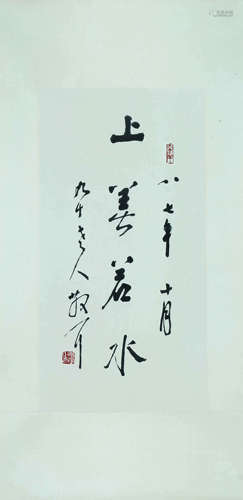 八七年 十月
上善若水
九十老人 敬之